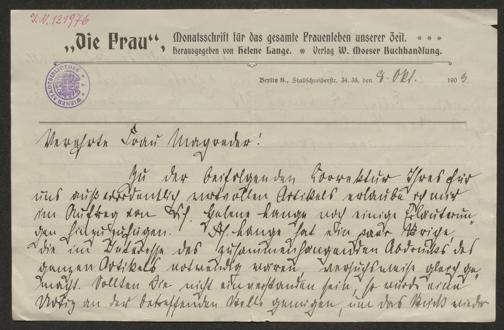 J.N. 139976
„Die Frau“, Monatsschrift für das gesamte Frauenleben unserer Zeit.
Herausgegeben von Helene Lange. Verlag W. Moeser Buchhandlung.
Berlin S., Stallschreiberstr. 34. 35, den 8. Okt. 1903
Verehrte Frau Mayreder!
Zu der beifolgenden Korrektur Ihres für
uns außerordentlich wertvollen Artikels erlaube ich mir
im Auftrag von Frl. Helene Lange noch einige Erläuterun-
gen hinzuzufügen. Frl. Lange hat ein paar Striche,
die im Interesse des zusammenhängenden Abdrucks des
ganzen Artikels notwendig waren versuchsweise gleich ge-
macht. Sollten Sie nicht einverstanden sein, so würde eine
Notiz an der betreffenden Stelle genügen, um das Stück wieder